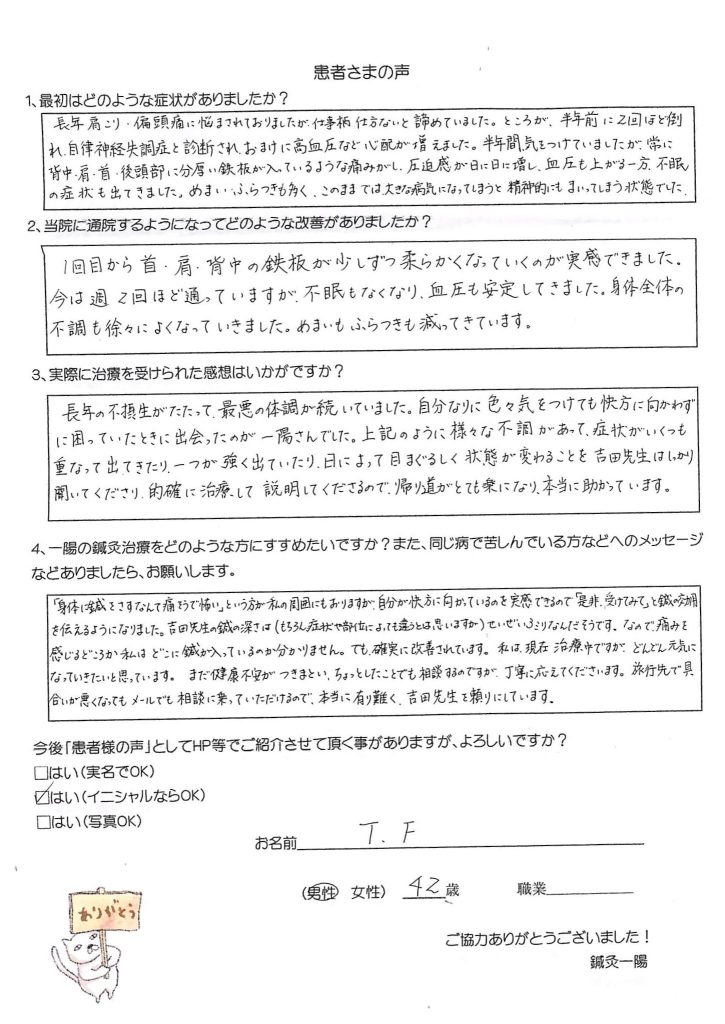 患者さまの声
1、最初はどのような症状がありましたか？
長年肩こり・偏頭痛に悩まされておりましたが仕事柄仕方ないと諦めていました。ところが、半年前に2回ほど倒
れ、自律神経失調症と診断され、おまけに高血圧など心配が増えました。半年間気をつけていましたが、常に
背中・肩・首・後頭部に分厚い鉄板が入っているような痛みがし、圧迫感が日に日に増し、血圧も上がる一方、不眠
の症状も出てきました。めまい、ふらつきも多く、このままでは大きな病気になってしまうと精神的にもまいってしまう状態でした。
2、当院に通院するようになってどのような改善がありましたか？
1回目から首・肩・背中の鉄板が少しずつ柔らかくなっていくのが実感できました。
今は週2回ほど通っていますが、不眠もなくなり、血圧も安定してきました。身体全体の
不調も徐々によくなっていきました。めまいもふらつきも減ってきています。
3、実際に治療を受けられた感想はいかがですか？
長年の不摂生がたたって、最悪の体調が続いていました。自分なりに色々気をつけても快方に向かわず
に困っていたときに出会ったのが一陽さんでした。上記のように様々な不調があって、症状がいくつも
重なって出てきたり、一つが強く出ていたり、日によって目まぐるしく状態が変わることを吉田先生はしっかり
聞いてくださり、的確に治療して説明してくださるので、帰り道がとても楽になり、本当に助かっています。
4、一陽の鍼灸治療をどのような方にすすめたいですか？また、同じ病で苦しんでいる方などへのメッセージ
などありましたら、お願いします。
「身体に鍼をさすなんて痛そうで怖い」という方が私の周囲にもおりますが、自分が快方に向かっているのを実感できるので「是非、受けてみて」と鍼の効用
を伝えるようになりました。吉田先生の鍼の深さは(もちろん症状や部位によっても違うとは思いますか)せいぜい3ミリなんだそうです。なので、痛みを
感じるどころか私はどこに鍼が入っているのか分かりません。でも、確実に改善されています。私は、現在治療中ですが、どんどん元気に
なっていきたいと思っています。まだ健康不安がつきまとい、ちょっとしたことでも相談するのですが、丁寧に応えてくださいます。旅行先で具
合いが悪くなってもメールでも相談に乗っていただけるので、本当に有り難く、吉田先生を頼りにしています。
今後「患者様の声」としてHP等でご紹介させて頂く事がありますが、よろしいですか？
□はい(実名でOK)
☑はい(イニシャルならOK)
□はい(写真OK)
お名前 T.F
(男性 女性) 42歳 職業
ありがとう
ご協力ありがとうございました！
鍼灸一陽